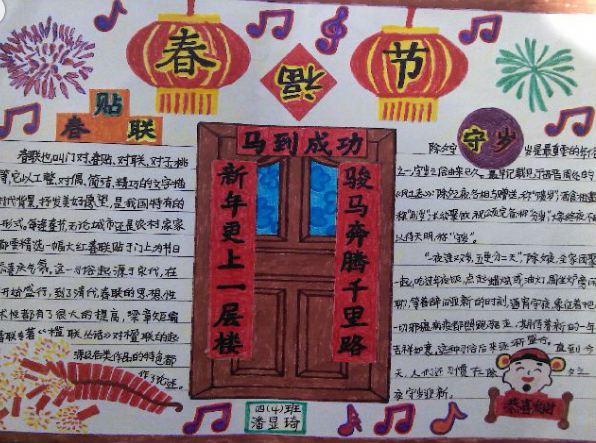 春
节
福
贴
春联
春联也叫门对、春贴、对联、对子、桃
等,它以工整、对偶、简洁、精巧的文字描
时代背景,抒发美好愿望,是我国特有的
形式。每逢春节,无论城市还是农村,家家
都要精选一幅大红春联贴于门上,为节日
喜庆气氛。这一习俗起源于宋代,在
开始盛行,到了清代,春联的思想性
术性都有了很大的提高,梁章矩编
春联专著《楹联丛话》对楹联的起
源及各类作品的特色都
作了论述。
马到成功
新年更上一层楼
骏马奔腾千里路
守岁
除夕守岁是最重要的年俗
之一,守岁之俗由来已久。最早记载见于西晋周处的
待天明,称"守岁"。
除夕夜,全家团聚
一起,吃过年夜饭,点起蜡烛或油灯,围坐炉旁闲
聊,等着辞旧迎新的时刻,通宵守夜,象征着把
一切邪瘟病疫都照跑驱走,期待着新的一年
吉祥如意。这种习俗后来逐渐盛行,直到今
天,人们还习惯在除夕之
夜守岁迎新。
恭喜发财
四(4)班
潘显琦